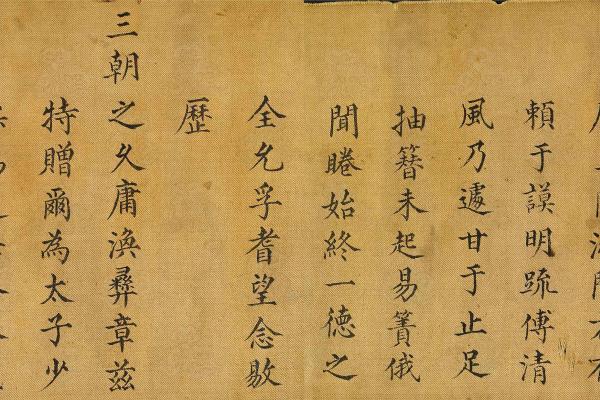 頼于謨明踈傅清
風乃遽甘于止足
抽簪未起易簀俄
聞睠始終一徳之
全允孚耆望念敭
歷
三朝之久庸渙彞章茲
特贈爾為太子少